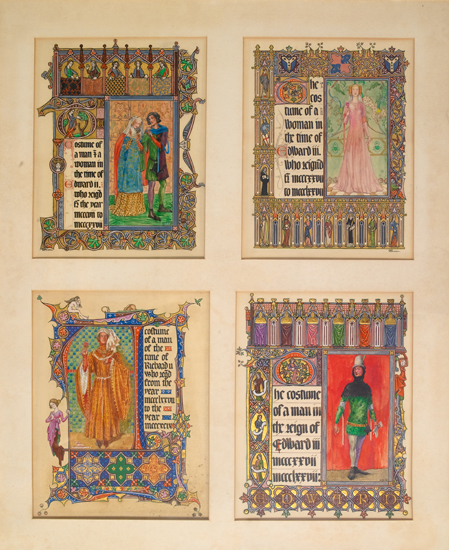 Costume
of a man & a
woman in
the time of
Edward ii.
who reign'd
the year
mcccvii to
mcccxxvii
The
cos
tume of a
woman in
the time of
Edward iii.
who reign'd
mcccxxvii
to mccclxxvii
costume
of a man
of the
time of
Richard ii
who reig'd
from the
year
mccclxxvii
to the
year
mcccxcix
The costume
of a man in
the reign of
Edward iii
mcccxxvii
mccclxxvii:
EDWARD